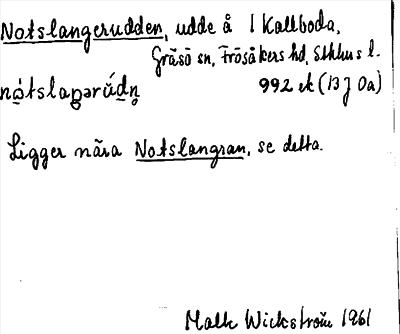 Notslangerudden, udde å 1 Kallboda,
Gräsö sn, Frösåkers hd, Sthlms l.
nó̤tslaŋərúdn̥ 992 ek (13 J 0a)
Ligger nära Notslangran, se detta.
Mats Wickström 1961